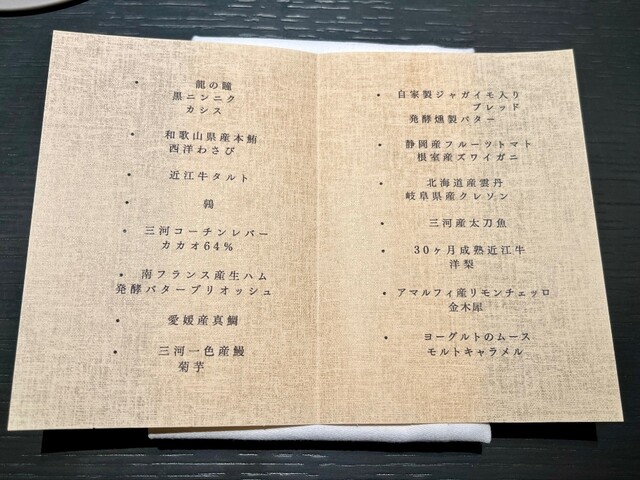 • 龍の瞳
黒ニンニク
カシス
• 和歌山県産本鮪
西洋わさび
• 近江牛タルト
• 鶉
• 三河コーチンレバー
カカオ64%
• 南フランス産生ハム
発酵バターブリオッシュ
• 愛媛産真鯛
• 三河一色産鰻
菊芋
• 自家製ジャガイモ入り
ブレッド
発酵燻製バター
• 静岡産フルーツトマト
根室産ズワイガニ
• 北海道産雲丹
岐阜県産クレソン
• 三河産太刀魚
• 30ヶ月成熟近江牛
洋梨
• アマルフィ産リモンチェッロ
金木犀
• ヨーグルトのムース
モルトキャラメル